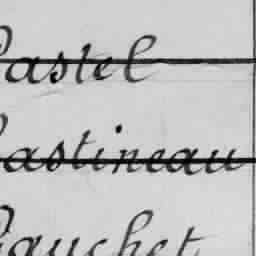 Castel
Castineau
Gauchet